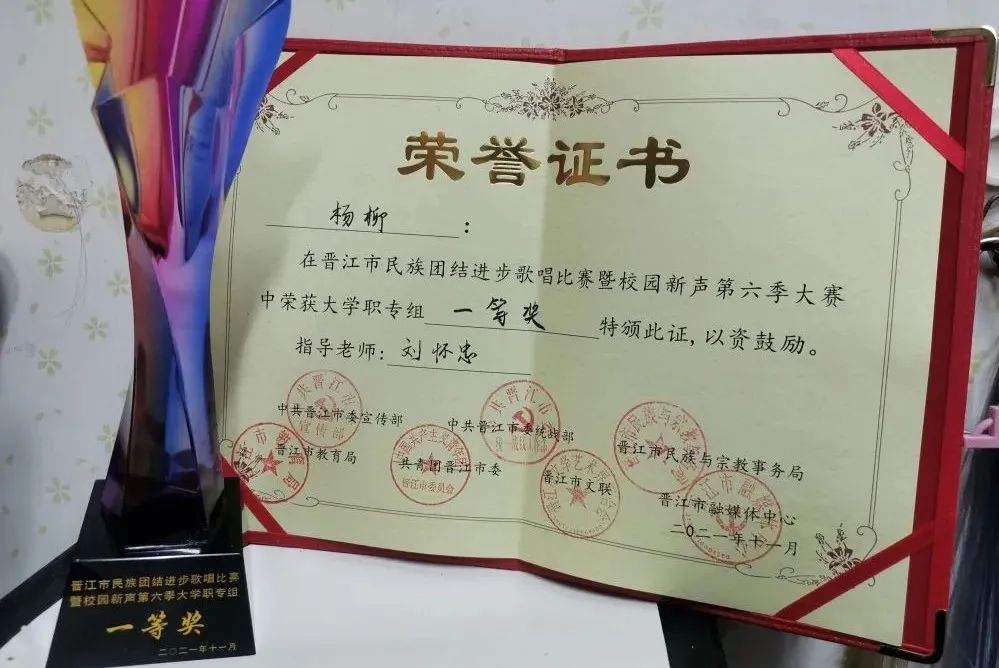 荣誉证书
杨柳：
在晋江市民族团结进步歌唱比赛暨校园新声第六季大赛
中荣获大学职专组一等奖特颁此证,以资鼓励。
指导老师:刘怀忠
中共晋江市委宣传部
中共晋江市委统战部
晋江市民族与宗教事务局
晋江市教育局
共青团晋江市委
晋江市文联
晋江市融媒体中心
二〇二一年十一月
晋江市民族团结进步歌唱比赛
暨校园新声第六季大学职专组
一等奖
二〇二一年十一月